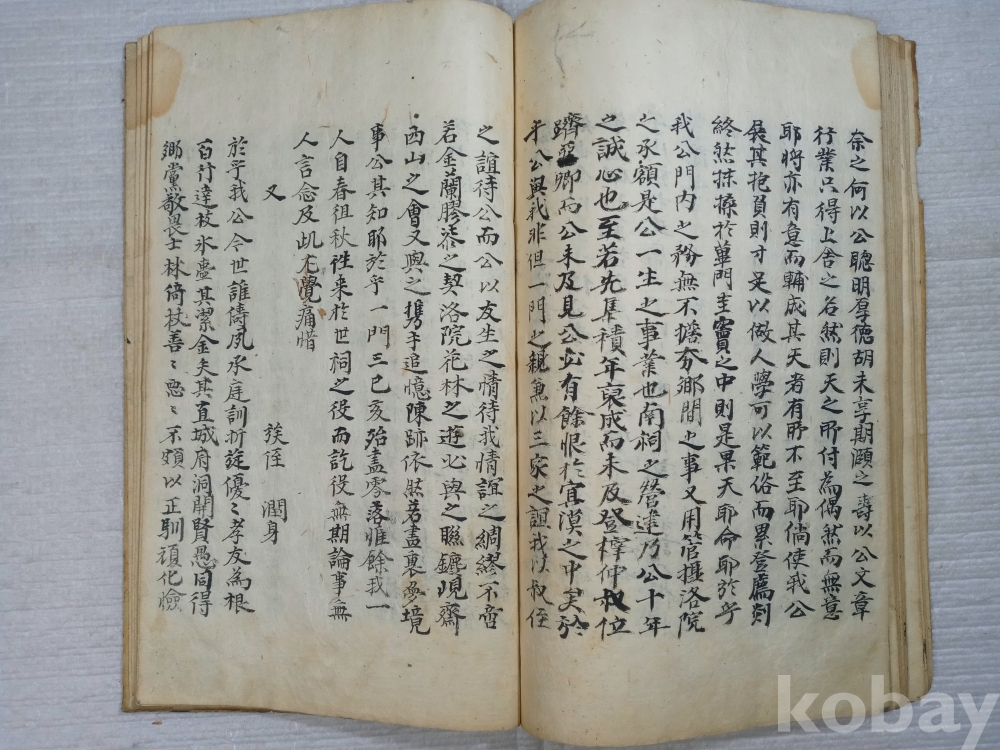 奈之何以公聰明厚德胡未享期頤之壽以公文章
行業只得上舍之名然則天之所付為偶然而無意
耶將亦有意而輔成其天者有所不至耶倘使我公
展其抱負則才足以做人學可以範俗而累登薦剡
終然抹摋於蓽門圭竇之中則是果天耶命耶於乎
我公門內之務無不擔夯鄉閭之事又用管攝洛院
之承額是公一生之事業也南祠之營建乃公十年
之誠心也至若先集積年裒成而未及登梓仲叔位
躋亞卿而公未及見公必有餘恨於宜漠之中矣於
乎公與我非但一門之親兼以三家之誼我以叔侄
之誼待公而公以友生之情待我情誼之綢繆不啻
若金蘭膠漆之契洛院花林之遊必與之聯鑣峴齋
西山之會又與之携手追憶陳跡依然若畫裏夢境
事公其知耶於乎一門三已亥殆盡零落惟餘我一
人自春徂秋往來於世祠之役而訖役無期論事無
人言念及此尤覺痛惜
又
族侄 潤身
於乎我公今世誰儔夙承庭訓折旋優〻孝友為根
百行達枝氷壺其潔金矢其直城府洞開賢愚同得
鄉黨敬畏士林倚杖善〻惡〻不頗以正馴頑化憸
kobay